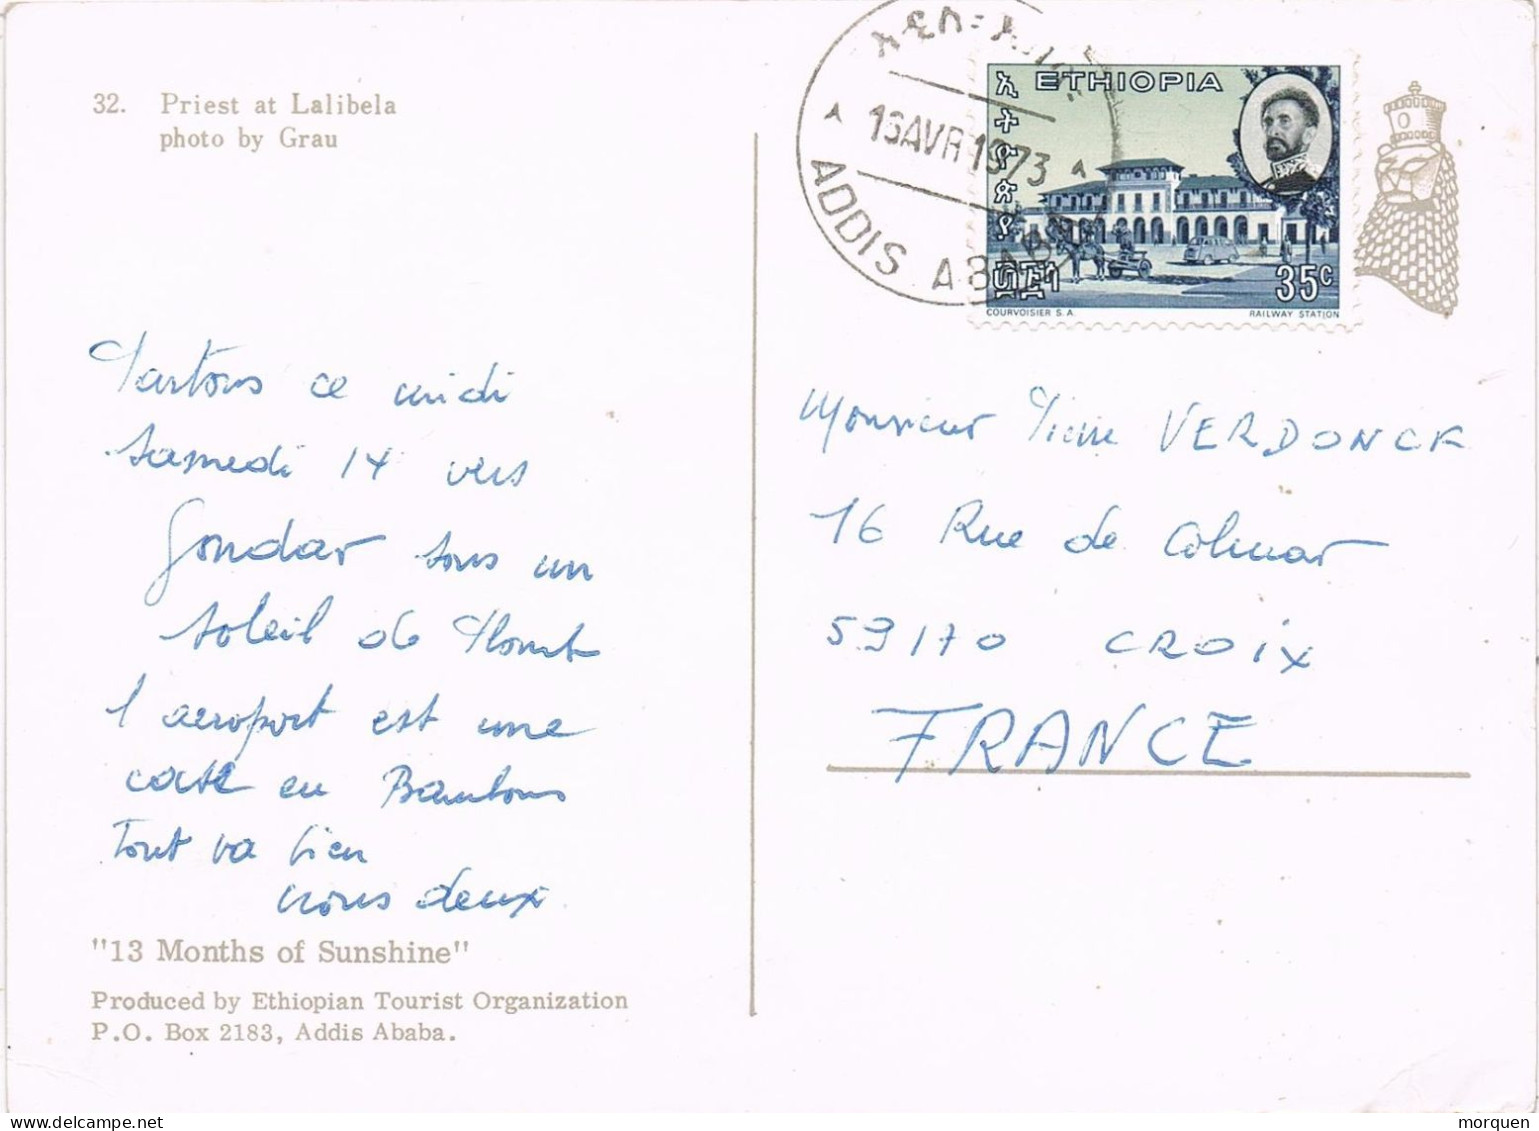 32. Priest at Lalibela
photo by Grau
አዲስ፡አበባ
16 AVR 1973
ADDIS ABABA
ETHIOPIA
ኢትዮጵያ
35c
COURVOISIER S.A.
RAILWAY STATION
Partons ce midi
Samedi 14 vers
Gondar sous un
soleil de Plomb
l'aeroport est une
case en Bambous
Tout va bien
nous deux
"13 Months of Sunshine"
Produced by Ethiopian Tourist Organization
P.O. Box 2183, Addis Ababa.
Monsieur Pierre VERDONCK
16 Rue de Colmar
59170 CROIX
FRANCE
morquen